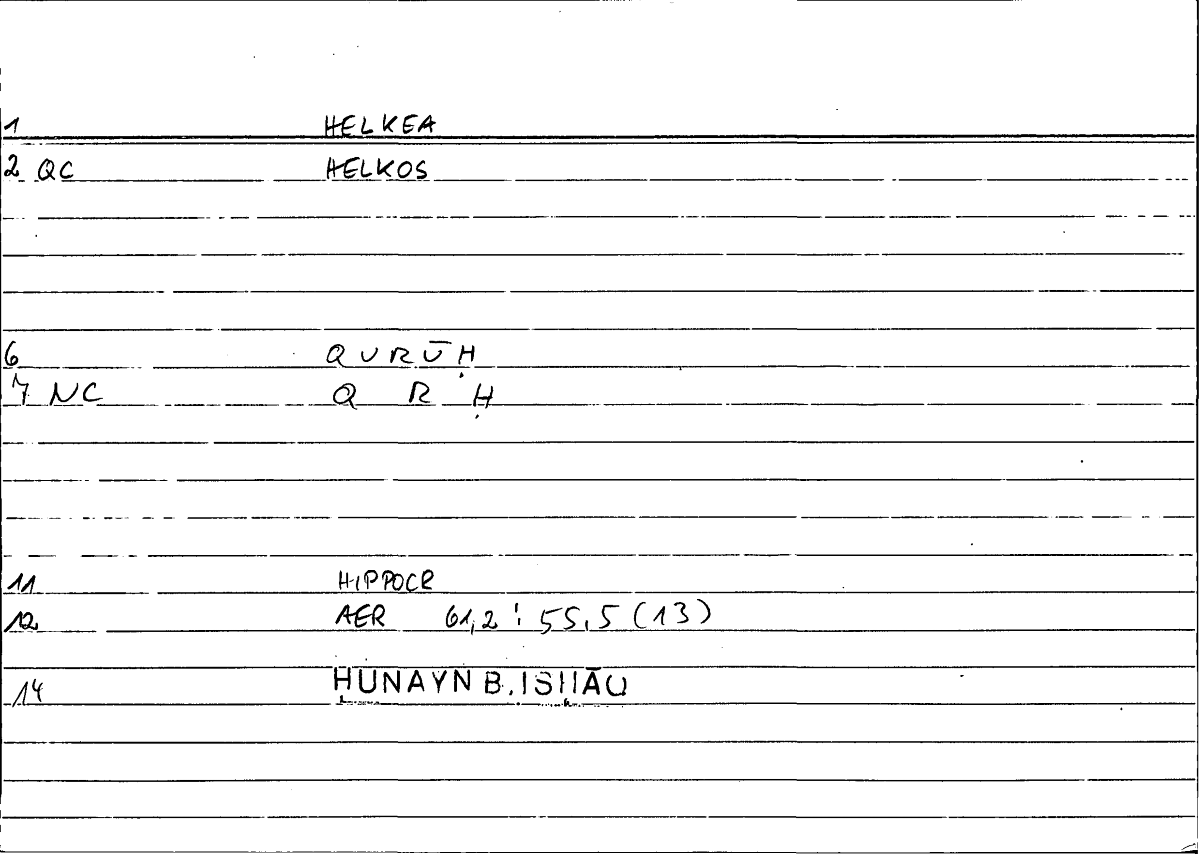 1 HELKEA
2 QC HELKOS
6 QURŪḤ
7 NC Q R Ḥ
11 HIPPOCR
12 AER 61,2 : 55,5 (13)
14 ḤUNAYN B. ISḤĀQ